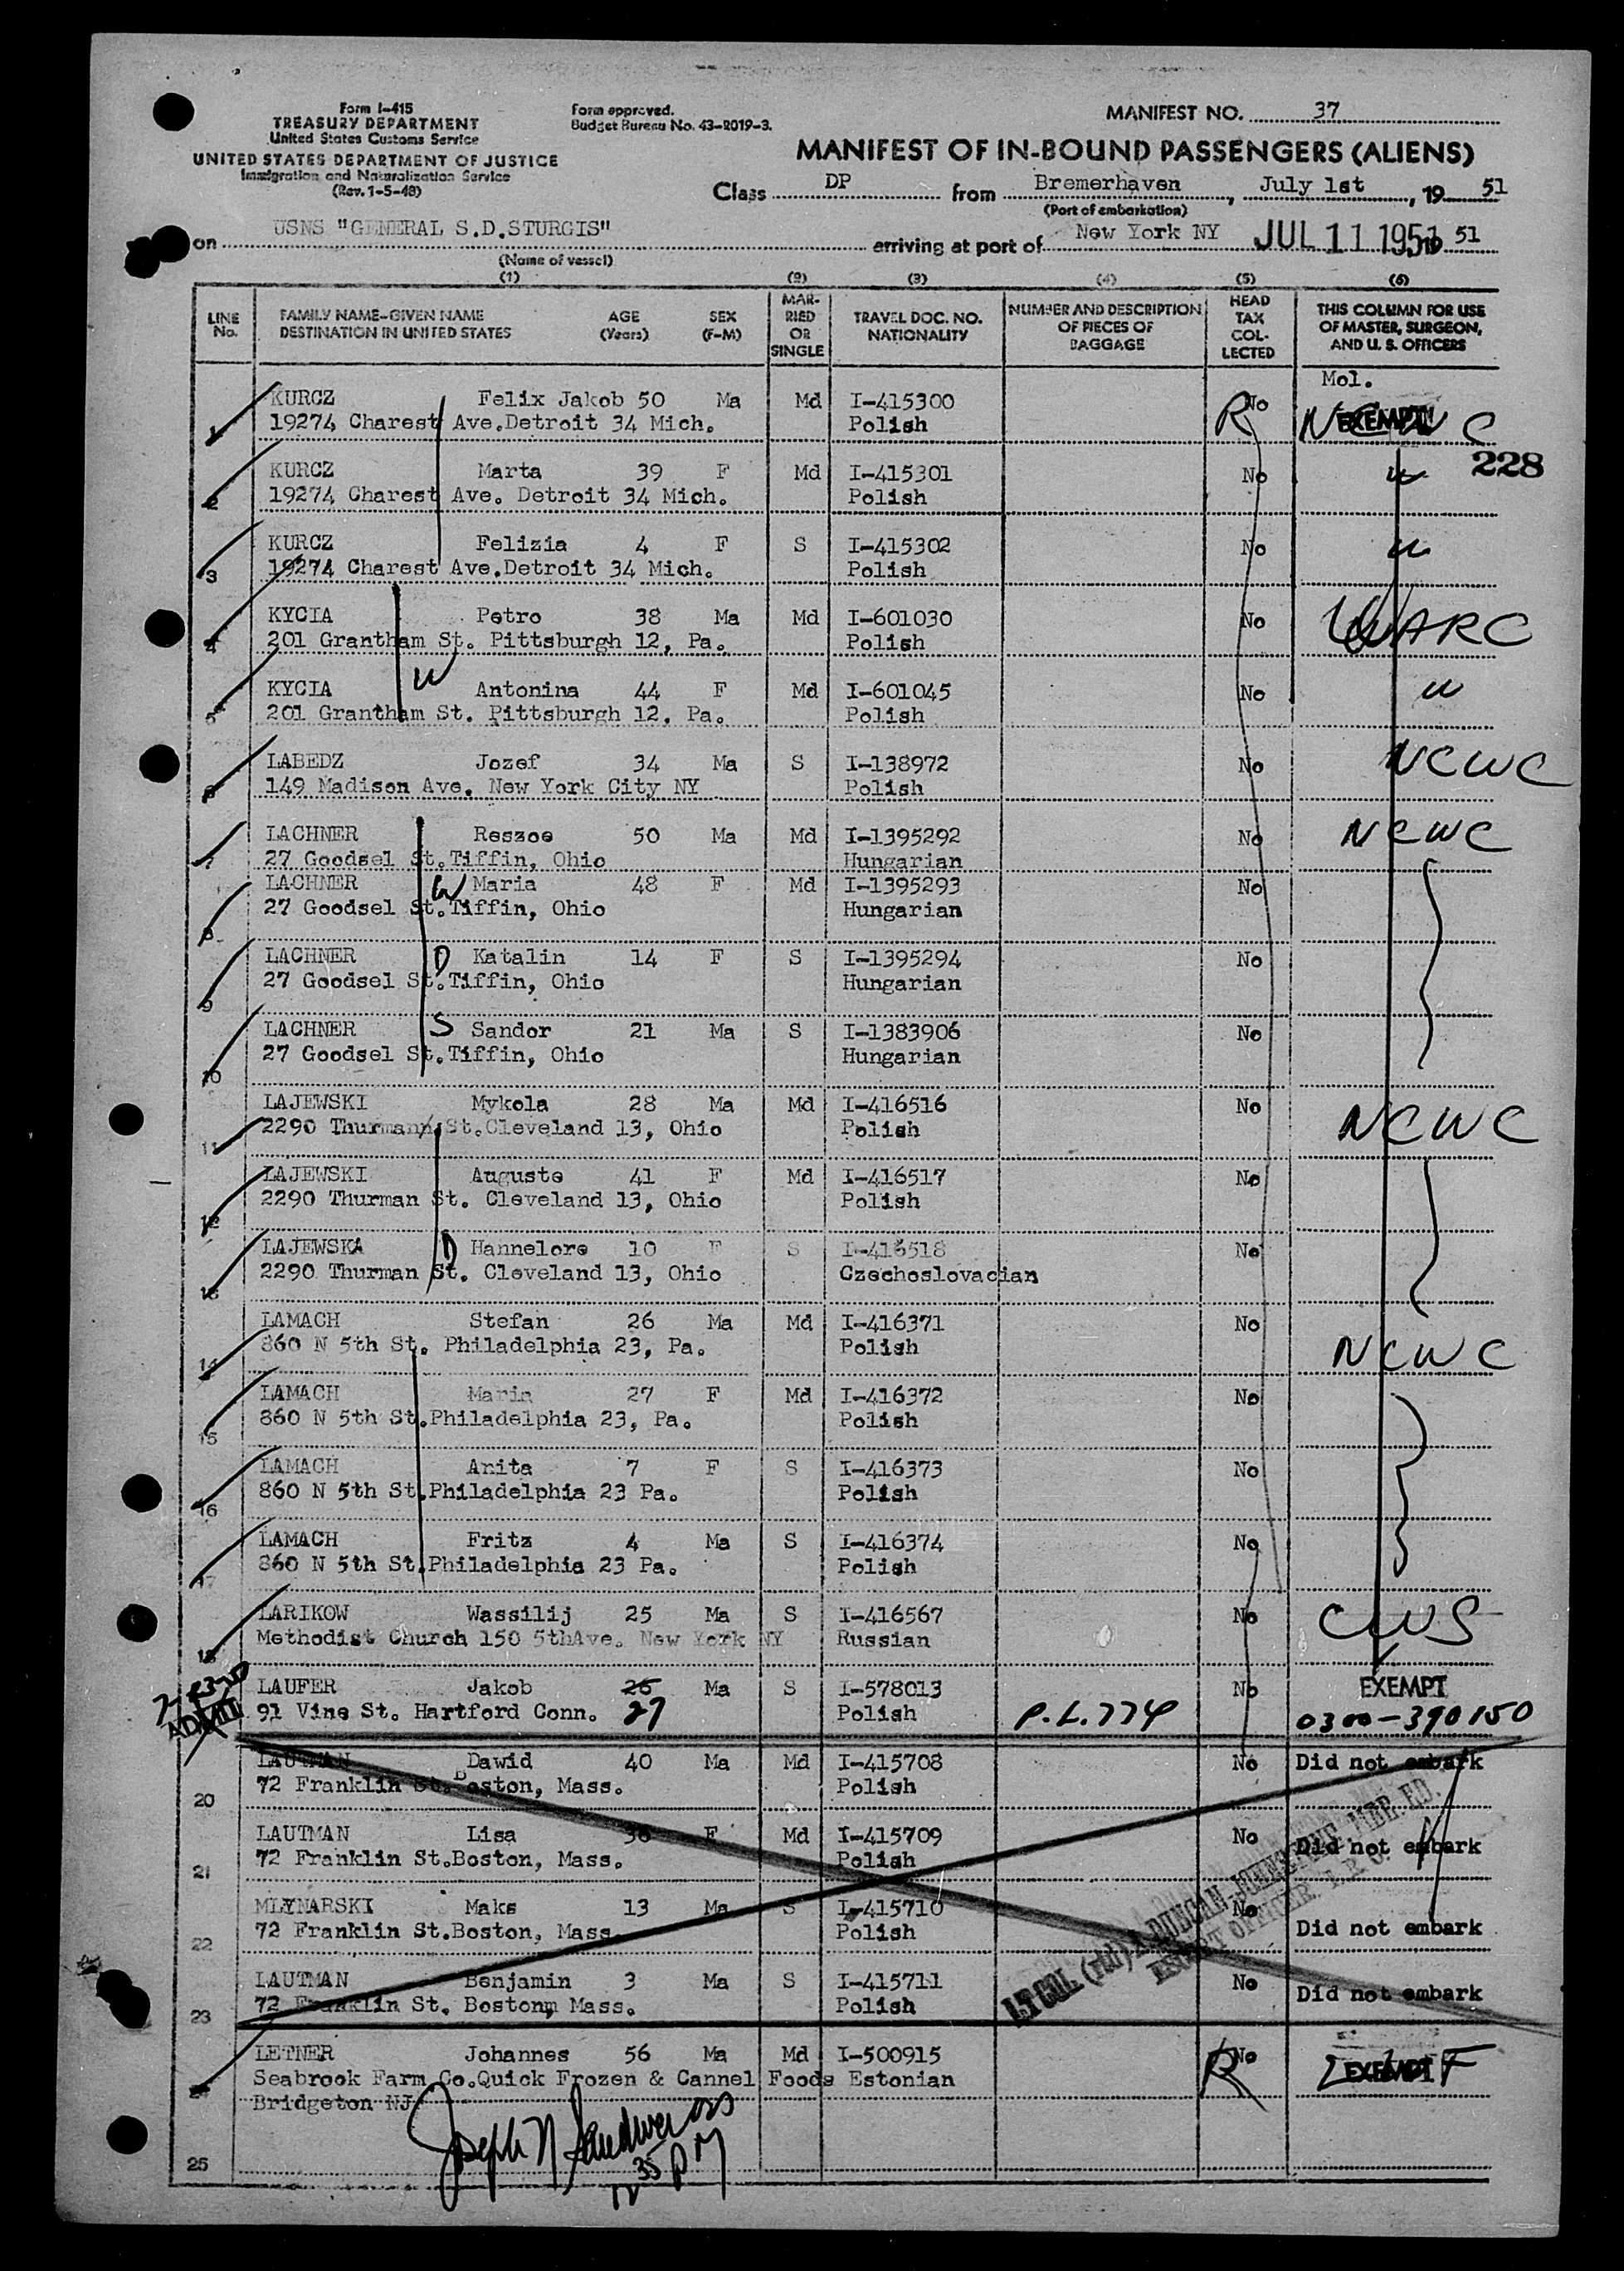 Form I-415
TREASURY DEPARTMENT
United States Customs Service
UNITED STATES DEPARTMENT OF JUSTICE
Immigration and Naturalization Service
(Rev. 1-5-48)
Form approved.
Budget Bureau No. 43-R019-3.
MANIFEST NO. 37
MANIFEST OF IN-BOUND PASSENGERS (ALIENS)
Class DP from Bremerhaven, July 1st, 19 51
(Port of embarkation)
on USNS "GENERAL S.D.STURGIS" arriving at port of New York NY JUL 11 1951 19 51
(Name of vessel)
(1) (2) (3) (4) (5) (6)
LINE No. FAMILY NAME-GIVEN NAME DESTINATION IN UNITED STATES AGE (Years) SEX (F-M) MARRIED OR SINGLE TRAVEL DOC. NO. NATIONALITY NUMBER AND DESCRIPTION OF PIECES OF BAGGAGE HEAD TAX COLLECTED THIS COLUMN FOR USE OF MASTER, SURGEON, AND U. S. OFFICERS
Mol.
1 KURCZ Felix Jakob 50 Ma Md I-415300 R No EXEMPT NCWC
19274 Charest Ave.Detroit 34 Mich. Polish
228
2 KURCZ Marta 39 F Md I-415301 No "
19274 Charest Ave. Detroit 34 Mich. Polish
3 KURCZ Felizia 4 F S I-415302 No "
19274 Charest Ave.Detroit 34 Mich. Polish
4 KYCIA Petro 38 Ma Md I-601030 No UUARC
201 Grantham St. Pittsburgh 12, Pa. Polish
5 KYCIA W Antonina 44 F Md I-601045 No "
201 Grantham St. Pittsburgh 12, Pa. Polish
6 LABEDZ Jozef 34 Ma S I-138972 No NCWC
149 Madison Ave. New York City NY Polish
7 LACHNER Reszoe 50 Ma Md I-1395292 No NCWC
27 Goodsel St.Tiffin, Ohio Hungarian
8 LACHNER W Maria 48 F Md I-1395293 No
27 Goodsel St.Tiffin, Ohio Hungarian
9 LACHNER D Katalin 14 F S I-1395294 No
27 Goodsel St.Tiffin, Ohio Hungarian
10 LACHNER S Sandor 21 Ma S I-1383906 No
27 Goodsel St.Tiffin, Ohio Hungarian
11 LAJEWSKI Mykola 28 Ma Md I-416516 No NCWC
2290 Thurmann St.Cleveland 13, Ohio Polish
12 LAJEWSKI Auguste 41 F Md I-416517 No
2290 Thurman St. Cleveland 13, Ohio Polish
13 LAJEWSKA D Hannelore 10 F S I-416518 No
2290 Thurman St. Cleveland 13, Ohio Czechoslovacian
14 LAMACH Stefan 26 Ma Md I-416371 No NCWC
860 N 5th St. Philadelphia 23, Pa. Polish
15 LAMACH Maria 27 F Md I-416372 No
860 N 5th St.Philadelphia 23, Pa. Polish
16 LAMACH Anita 7 F S I-416373 No
860 N 5th St.Philadelphia 23 Pa. Polish
17 LAMACH Fritz 4 Ma S I-416374 No
860 N 5th St.Philadelphia 23 Pa. Polish
18 LARIKOW Wassilij 25 Ma S I-416567 No CWS
Methodist Church 150 5thAve. New York NY Russian
LAUFER Jakob 26 Ma S I-578013 No EXEMPT
91 Vine St. Hartford Conn. 27 Polish P.L.774 0300-390150
20 LAUTMAN Dawid 40 Ma Md I-415708 No Did not embark
72 Franklin St.Boston, Mass. Polish
21 LAUTMAN Lisa 36 F Md I-415709 No Did not embark
72 Franklin St.Boston, Mass. Polish
22 MLYNARSKI Maks 13 Ma S I-415710 No Did not embark
72 Franklin St.Boston, Mass. Polish
23 LAUTMAN Benjamin 3 Ma S I-415711 No Did not embark
72 Franklin St. Bostonm Mass. Polish
LT COL. (rtd) DUNCAN-JOHNSTONE
ESCORT OFFICER, I.R.O.
24 LETNER Johannes 56 Ma Md I-500915 R No EXEMPT
Seabrook Farm Co.Quick Frozen & Cannel Foods Estonian
Bridgeton NJ
25
Joseph N
12 35 PM